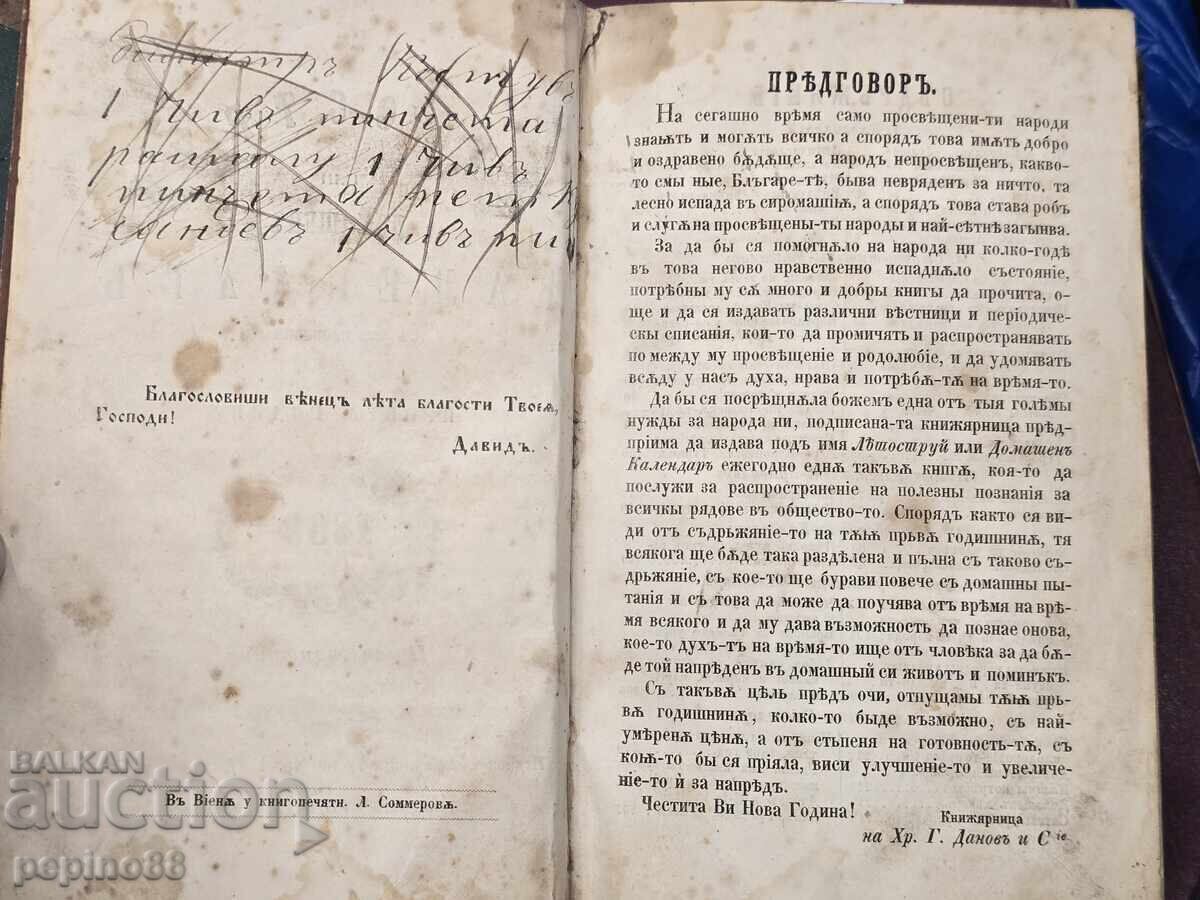 1 чивъ
1 чивъ
1 чивъ
Благословиши вѣнецъ лѣта благости Твоеѧ,
Господи!
Давидъ.
Въ Віенѫ у книгопечятн. Л. Соммеровѫ.
BALKAN
auction
pepino88
ПРѢДГОВОРЪ.
На сегашно врѣмя само просвѣщени-ти народи
знаѭтъ и могѫтъ всичко а спорядъ това имѫтъ добро
и оздравено бѫдѫще, а народъ непросвѣщенъ, какво-
то смы ные, Българе-тѣ, быва невряденъ за ничто, та
лесно испада въ сиромашіѭ, а спорядъ това става робъ
и слугѫ на просвѣщены-ты народы и най-сѣтнѣ загынва.
За да бы ся помогнѫло на народа ни колко-годѣ
въ това негово нравственно испаднѫло състояніе,
потрѣбны му сѫ много и добры книгы да прочита, о-
ще и да ся издавать различни вѣстници и періодиче-
скы списанія, кои-то да промичять и распространявать
по между му просвѣщеніе и родолюбіе, и да удомявать
всѫду у насъ духа, нрава и потрѣбѫ-тѫ на врѣмя-то.
Да бы ся посрѣщнѫла божемъ една отъ тыя големы
нужды за народа ни, подписана-та книжярница прѣд-
пріима да издава подъ имя Лѣтоструй или Домашенъ
Календаръ ежегодно еднѫ такъвѫ книгѫ, коя-то да
послужи за распространеніе на полезны познанія за
всичкы рядове въ общество-то. Спорядъ както ся ви-
ди отъ съдръжяніе-то на тѫѭ пръвѫ годишнинѫ, тя
всякога ще бѫде така раздѣлена и пълна съ таково съ-
дръжяніе, съ кое-то ще бурави повече съ домашны пы-
танія и съ това да може да поучява отъ врѣмя на врѣ-
мя всякого и да му дава възможность да познае онова,
кое-то духъ-тъ на врѣмя-то ище отъ чловѣка за да бѫ-
де той напрѣденъ въ домашный си животъ и поминъкъ.
Съ такъвѫ цѣль прѣдъ очи, отпущамы тѫѭ пръ-
вѫ годишнинѫ, колко-то быде възможно, съ най-
умѣренѫ цѣнѫ, а отъ стъпеня на готовность-тѫ, съ
коѭ-то бы ся пріяла, виси улучшеніе-то и увеличе-
ніе-то ѝ за напрѣдъ.
Честита Ви Нова Година!
Книжярница
на Хр. Г. Дановъ и С іе.